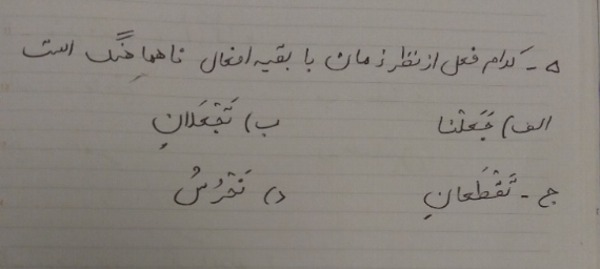 ۵- کدام فعل از نظر زمان با بقیه افعال ناهماهنگ است
الف) جَعَلْنا ب) تَجْعَلانِ
ج- تَقْطَعانِ د) نَحْرُسُ